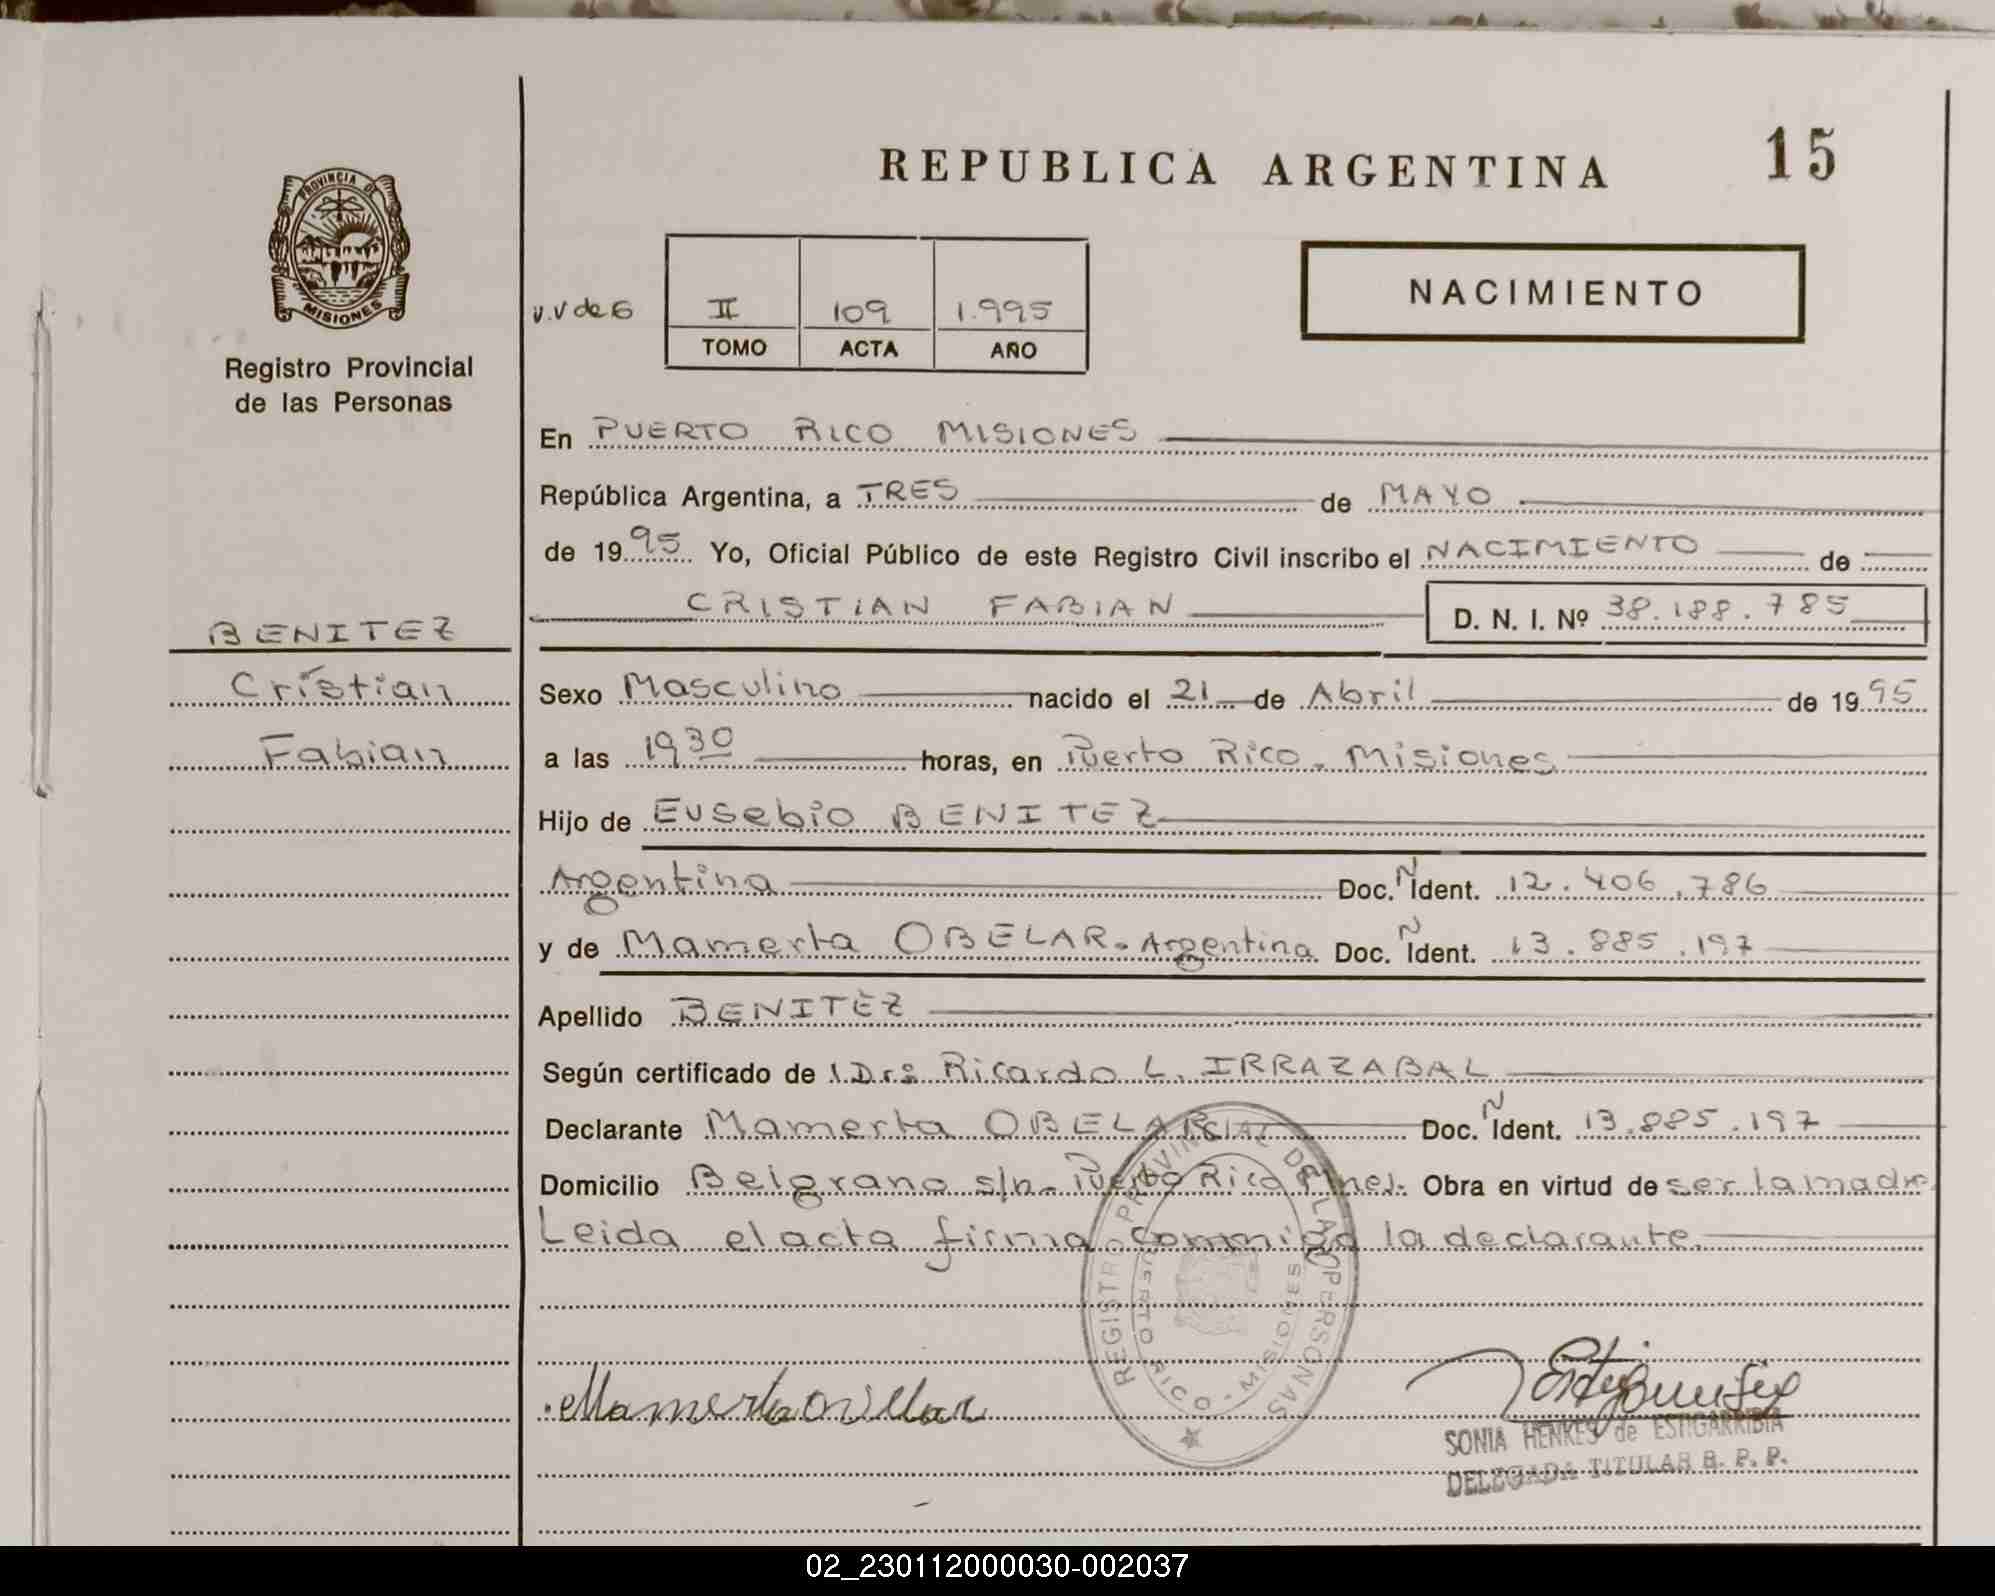 REPUBLICA ARGENTINA
15
PROVINCIA DE
MISIONES
Registro Provincial
de las Personas
NACIMIENTO
v.v de 6
II 109 1.995
TOMO ACTA AÑO
En PUERTO RICO MISIONES
República Argentina, a TRES de MAYO
de 1995 Yo, Oficial Público de este Registro Civil inscribo el NACIMIENTO de
CRISTIAN FABIAN D. N. I. Nº 38.188.785
BENITEZ
Cristian
Fabian
Sexo Masculino nacido el 21 de Abril de 1995
a las 1930 horas, en Puerto Rico. Misiones
Hijo de Eusebio BENITEZ
Argentina Doc. N Ident. 12.406.786
y de Mamerta OBELAR. Argentina Doc. N Ident. 13.885.197
Apellido BENITEZ
Según certificado de Ricardo L. IRRAZABAL
Declarante Mamerta OBELAR Doc. N Ident. 13.885.197
Domicilio Belgrano s/n. Puerto Rico Mnes. Obra en virtud de ser la madre
Leida el acta firma conmigo la declarante.
REGISTRO PROVINCIAL DE LAS PERSONAS
PUERTO RICO - MISIONES
SONIA HENKES de ESTIGARRIBIA
DELEGADA TITULAR R. P. P.
02_230112000030-002037